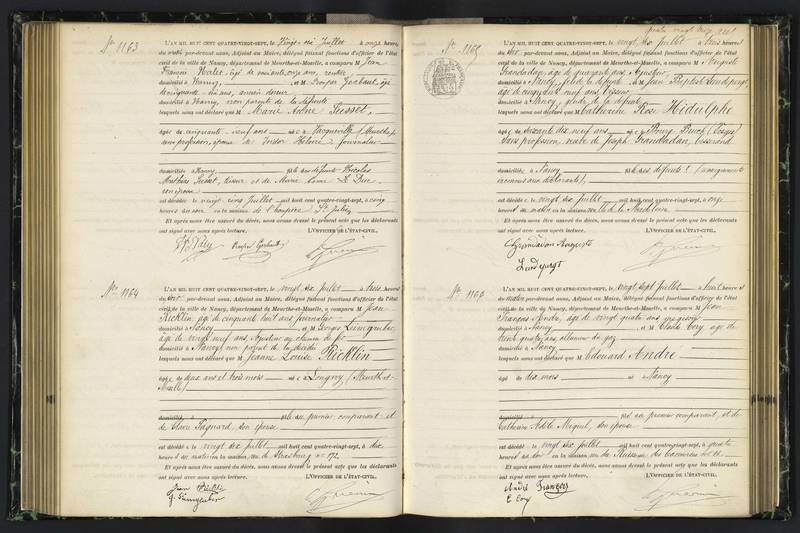 N° 1163
L'AN MIL HUIT CENT QUATRE-VINGT-SEPT, le Vingt six Juillet à onze heures
du matin par-devant nous, Adjoint au Maire, délégué faisant fonctions d'officier de l'état
civil de la ville de Nancy, département de Meurthe-et-Moselle, a comparu M Jean
François Valet, âgé de soixante onze ans, rentier,
domicilié à Nancy, et M Prosper Gerbaut, âgé
de cinquante six ans, ancien
domicilié à Nancy, non parent de la défunte
lesquels nous ont déclaré que M Marie Anne
âgée de cinquante neuf ans née à (Meurthe),
sans profession, épouse de Isidor journalier
domiciliée à Nancy fille des défunts Nicolas
et de Marie Anne Le Duc
son épouse
est décédée le vingt cinq Juillet mil huit cent quatre-vingt-sept, à cinq
heures du soir en la maison de l'hospice St Julien
Et après nous être assuré du décès, nous avons dressé le présent acte que les déclarants
ont signé avec nous après lecture. L'OFFICIER DE L'ÉTAT-CIVIL,
N° 1164
L'AN MIL HUIT CENT QUATRE-VINGT-SEPT, le vingt six Juillet à trois heures
du soir par-devant nous, Adjoint au Maire, délégué faisant fonctions d'officier de l'état
civil de la ville de Nancy, département de Meurthe-et-Moselle, a comparu M Jean
Ricklin, âgé de cinquante huit ans journalier
domicilié à Nancy et M Georges
âgé de vingt neuf ans, au chemin de fer
domicilié à Nancy, non parent de la décédée
lesquels nous ont déclaré que M Jeanne Louise Ricklin
âgée de deux ans et trois mois née à Longwy (Meurthe-et-
Moselle)
domiciliée à fille du premier comparant et
de Claire Pagnard, son épouse
est décédée le vingt six Juillet mil huit cent quatre-vingt-sept, à dix
heures du matin en la maison, rue de Strasbourg n° 172
Et après nous être assuré du décès, nous avons dressé le présent acte que les déclarants
ont signé avec nous après lecture. L'OFFICIER DE L'ÉTAT-CIVIL,
N° 1165
L'AN MIL HUIT CENT QUATRE-VINGT-SEPT, le vingt six Juillet à trois heures
du soir par-devant nous, Adjoint au Maire, délégué faisant fonctions d'officier de l'état
civil de la ville de Nancy, département de Meurthe-et-Moselle, a comparu M Auguste
Grandadam, âgé de quarante ans,
domicilié à Nancy, fils de la défunte et M Jean Baptiste
âgé de cinquante neuf ans, tisseur
domicilié à Nancy, gendre de la défunte
lesquels nous ont déclaré que M Catherine Rose Hidulphe
âgée de soixante dix neuf ans née à Bourg Bruche (Vosges)
sans profession, veuve de Joseph Grandadam, tisserand
domiciliée à Nancy fille des défunts (renseignements
inconnus aux déclarants),
est décédée le vingt six Juillet mil huit cent quatre-vingt-sept, à onze
heures du matin en la maison, rue de la Madeleine
Et après nous être assuré du décès, nous avons dressé le présent acte que les déclarants
ont signé avec nous après lecture. L'OFFICIER DE L'ÉTAT-CIVIL,
Grandadam Auguste
N° 1166
L'AN MIL HUIT CENT QUATRE-VINGT-SEPT, le vingt sept Juillet à huit heures
du matin par-devant nous, Adjoint au Maire, délégué faisant fonctions d'officier de l'état
civil de la ville de Nancy, département de Meurthe-et-Moselle, a comparu M Jean
François André, âgé de vingt quatre ans
domicilié à Nancy et M Claude âgé de
trente quatre ans, allumeur de gaz
domicilié à Nancy
lesquels nous ont déclaré que M Edouard André
âgé de dix mois né à Nancy
domicilié à fils du premier comparant, et de
Catherine Adèle son épouse
est décédé le vingt six Juillet mil huit cent quatre-vingt-sept, à quatre
heures du soir en la maison, rue
Et après nous être assuré du décès, nous avons dressé le présent acte que les déclarants
ont signé avec nous après lecture. L'OFFICIER DE L'ÉTAT-CIVIL,
André François